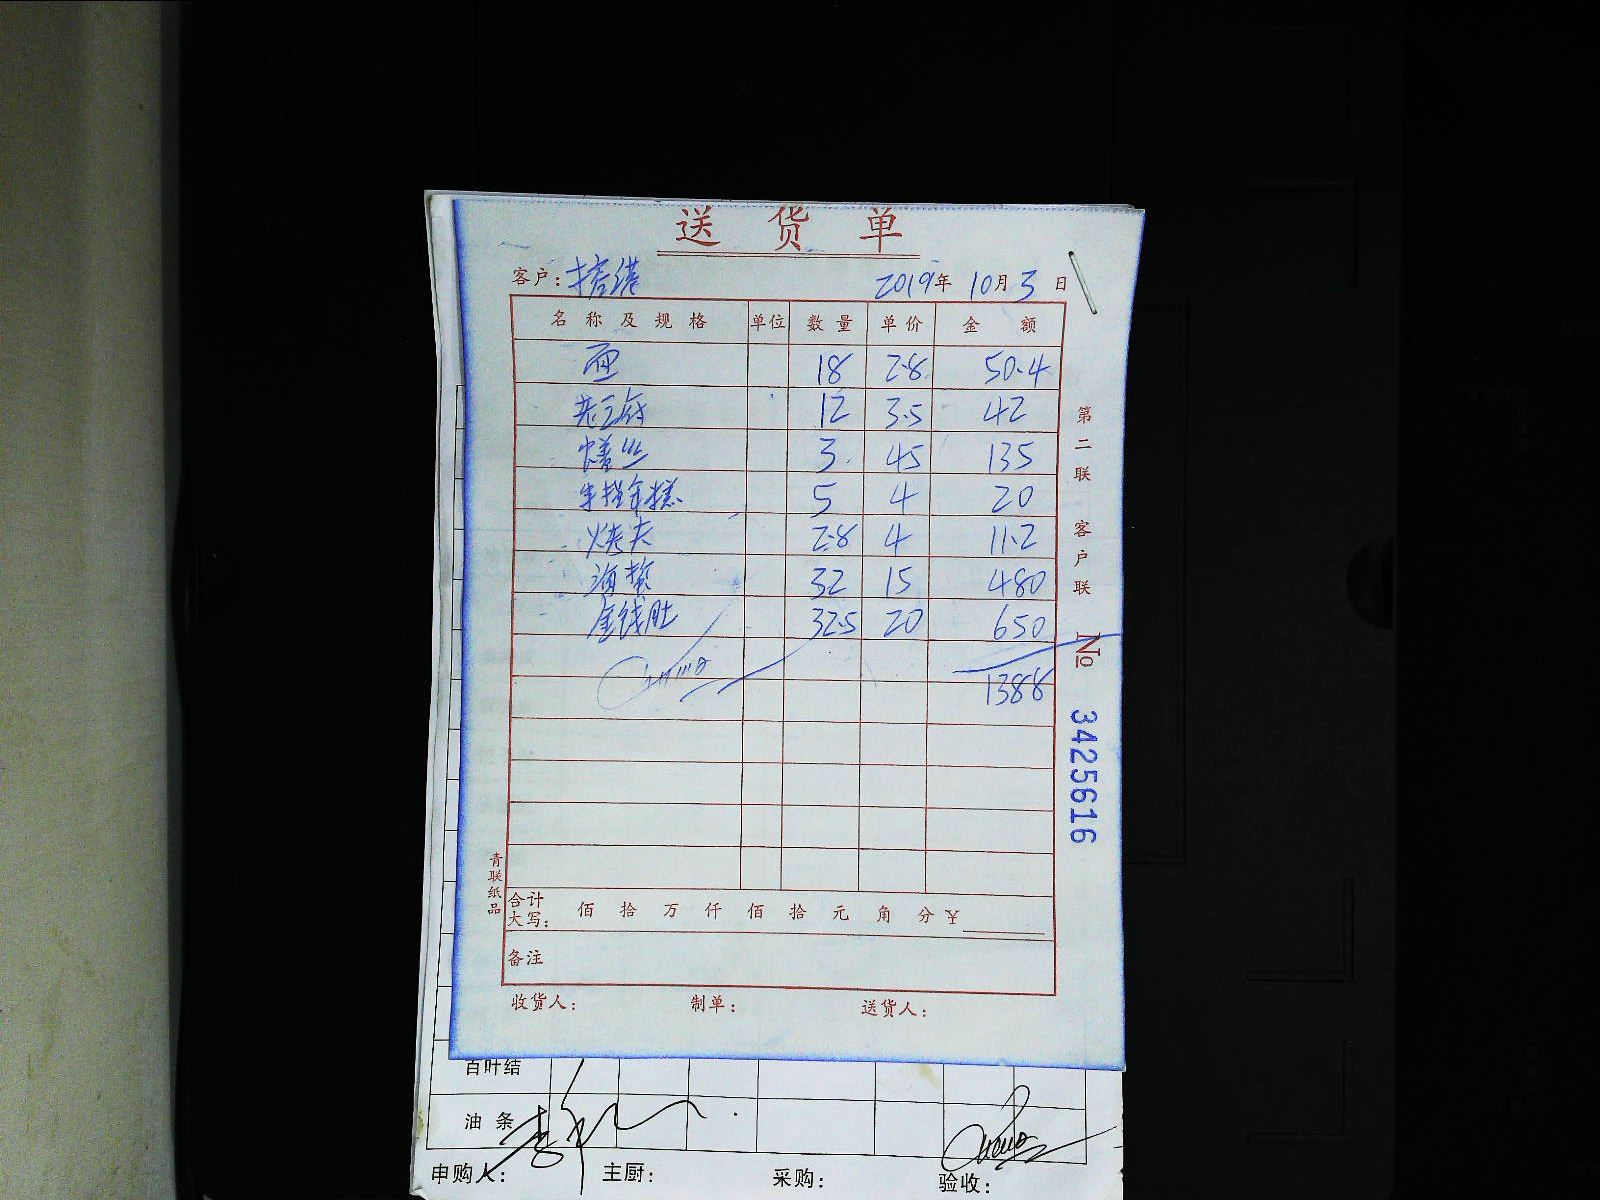 送 货 单
客户: 2019年 10月 3日
名称及规格 单位 数量 单价 金额
面 18 2.8 50.4
12 3.5 42
鳝丝 3. 45 135
手捏年糕 5 4 20
烤夫 2.8 4 11.2
海蜇 32 15 480
金钱肚 32.5 20 650
1388
合计
大写: 佰 拾 万 仟 佰 拾 元 角 分 ¥
备注
收货人: 制单: 送货人:
第二联 客户联
No 3425616
青联纸品
百叶结
油条
申购人: 主厨: 采购: 验收: